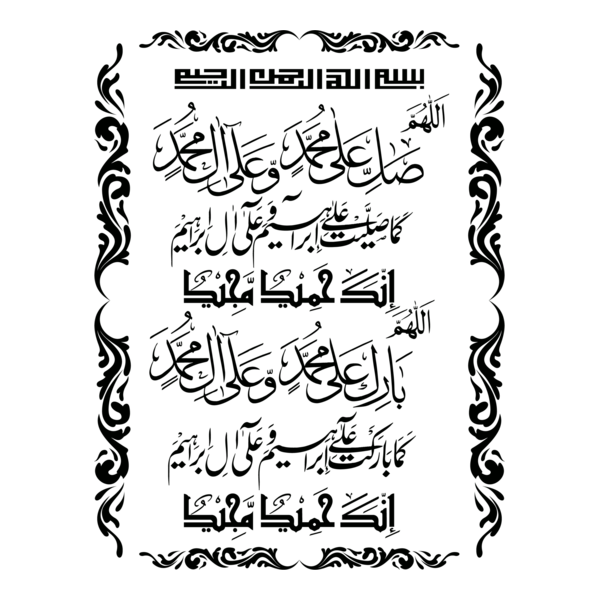 بسم الله الرحمن الرحيم
اَللّٰهُمَّ
صَلِّ عَلٰى مُحَمَّدٍ وَّعَلٰى آلِ مُحَمَّدٍ
كَمَا صَلَّيْتَ عَلٰى إِبْرَاهِيمَ وَعَلٰى آلِ إِبْرَاهِيمَ
إِنَّكَ حَمِيْدٌ مَّجِيْدٌ
اَللّٰهُمَّ
بَارِكْ عَلٰى مُحَمَّدٍ وَّعَلٰى آلِ مُحَمَّدٍ
كَمَا بَارَكْتَ عَلٰى إِبْرَاهِيمَ وَعَلٰى آلِ إِبْرَاهِيمَ
إِنَّكَ حَمِيْدٌ مَّجِيْدٌ